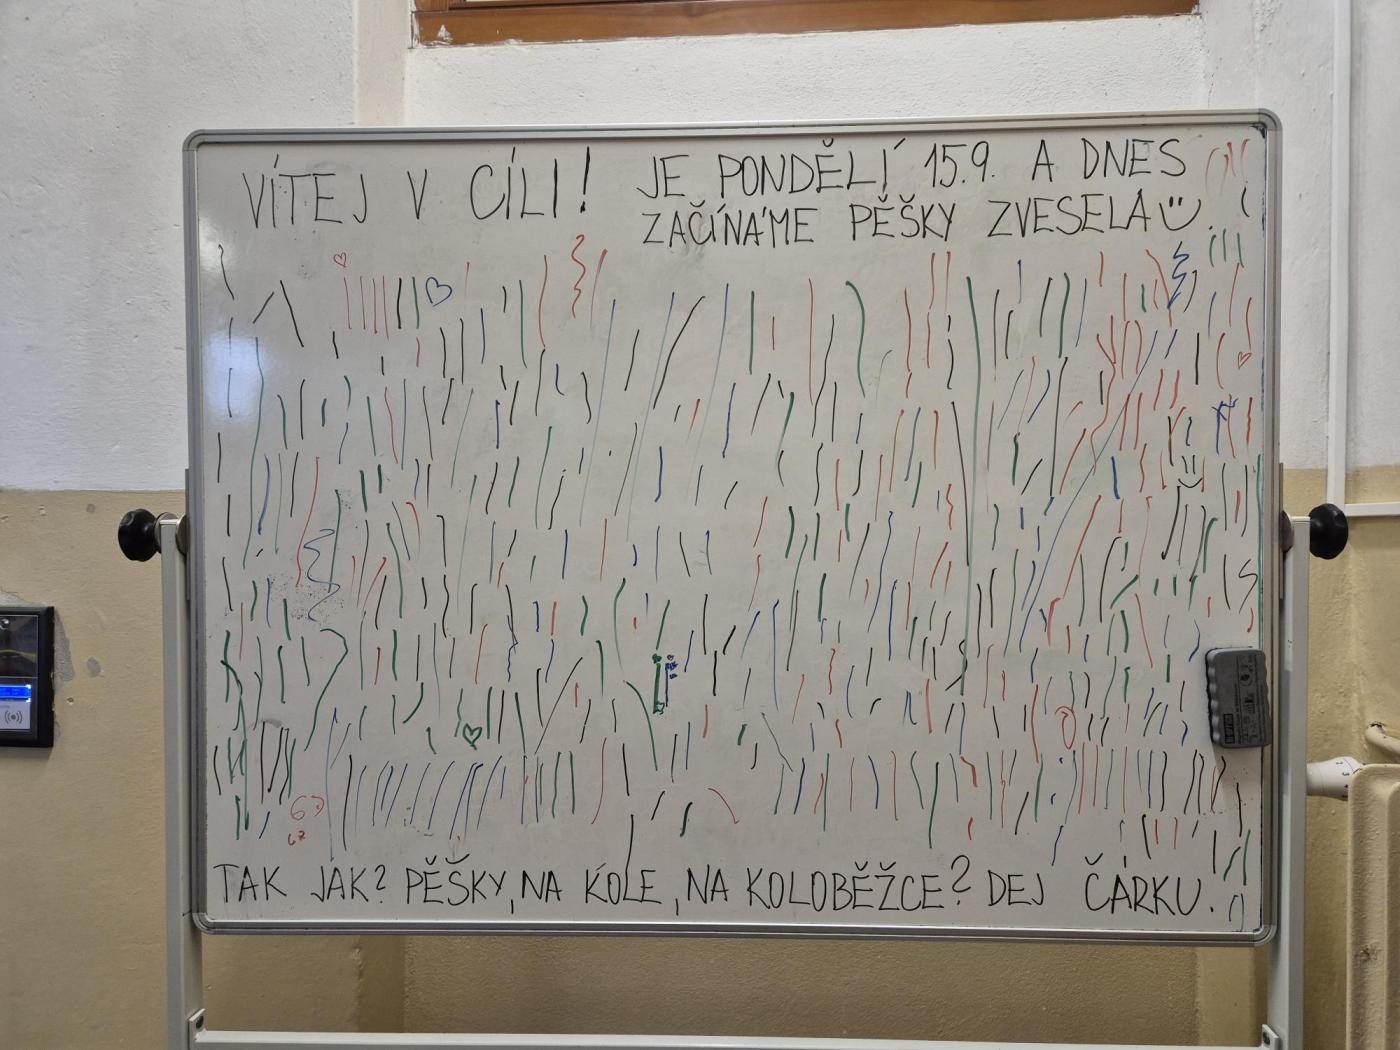 VÍTEJ V CÍLI!
JE PONDĚLÍ 15.9. A DNES
ZAČÍNÁME PĚŠKY ZVESELA
TAK JAK? PĚŠKY, NA KOLE, NA KOLOBĚŽCE? DEJ ČÁRKU.
67
67